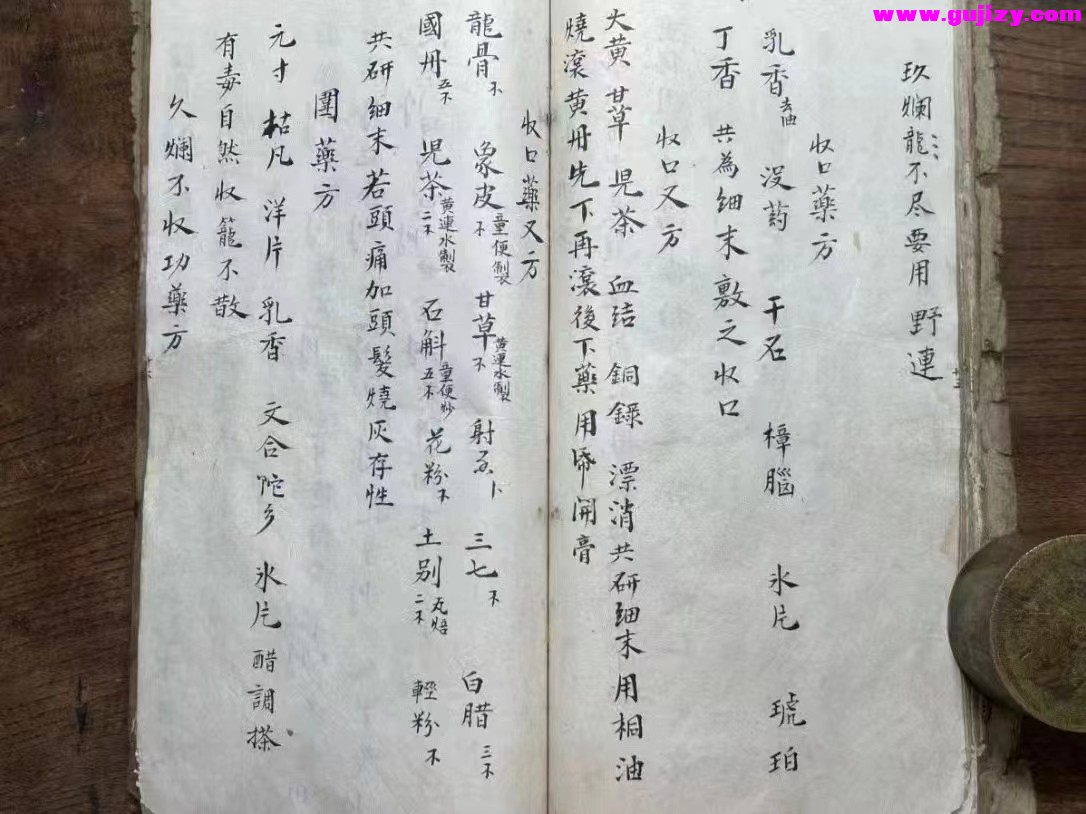 www.gujizy.com
玖爛龍〻不尽要用 野連
收口藥方
乳香去油 没药 干石 樟腦 氷片 琥珀
丁香 共為細末敷之收口
收口又方
大黄 甘草 児茶 血结 銅録 漂消共研細末用桐油
燒滾黄丹先下再滾後下藥用帋開膏
收口藥又方
龍骨不 象皮童便製不 甘草黄連水製不 射卜 三七不 白腊三不
國丹五不 児茶黄連水製二不 石斛童便炒五不 花粉不 土别瓦焙二不 輕粉不
共研細末若頭痛加頭髮燒灰存性
圍藥方
元寸 枯凡 洋片 乳香 文合陀乡 氷片醋調搽
有毒自然收籠不散
久爛不收功藥方